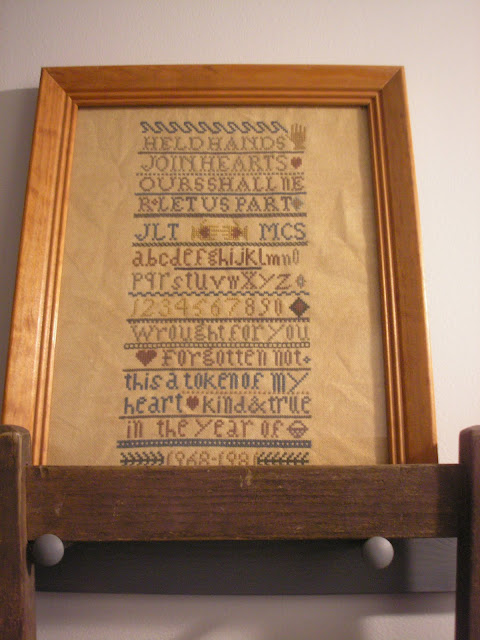 HELD HANDS
JOIN HEARTS
OURS SHALL NE
R LET US PART
JLT MCS
abcdefghijklmno
pqrstuvwxyz
1234567890
wrought for you
Forgotten not
this a token of my
heart kind & true
in the year of
1968-1981